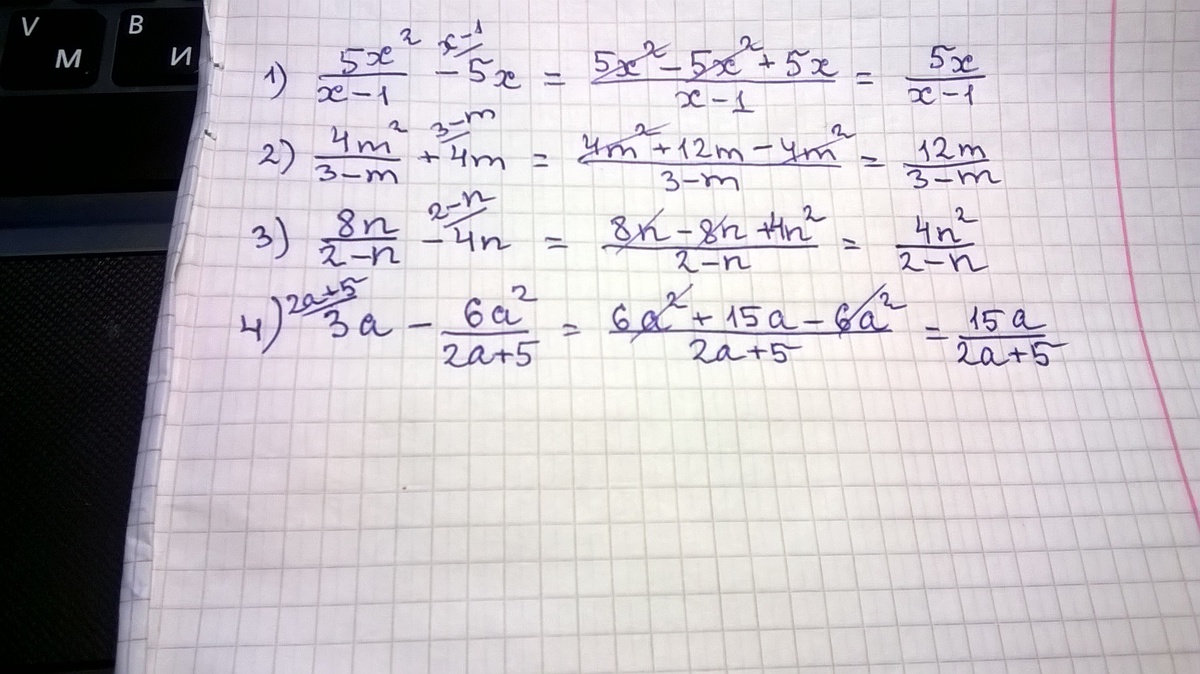 V B
М И
1) \frac{5x^2}{x-1} - \overset{x-1/}{5x} = \frac{5x^2 - 5x^2 + 5x}{x-1} = \frac{5x}{x-1}
2) \frac{4m^2}{3-m} + \overset{3-m/}{4m} = \frac{4m^2 + 12m - 4m^2}{3-m} = \frac{12m}{3-m}
3) \frac{8n}{2-n} - \overset{2-n/}{4n} = \frac{8n - 8n + 4n^2}{2-n} = \frac{4n^2}{2-n}
4) \overset{2a+5/}{3a} - \frac{6a^2}{2a+5} = \frac{6a^2 + 15a - 6a^2}{2a+5} = \frac{15a}{2a+5}